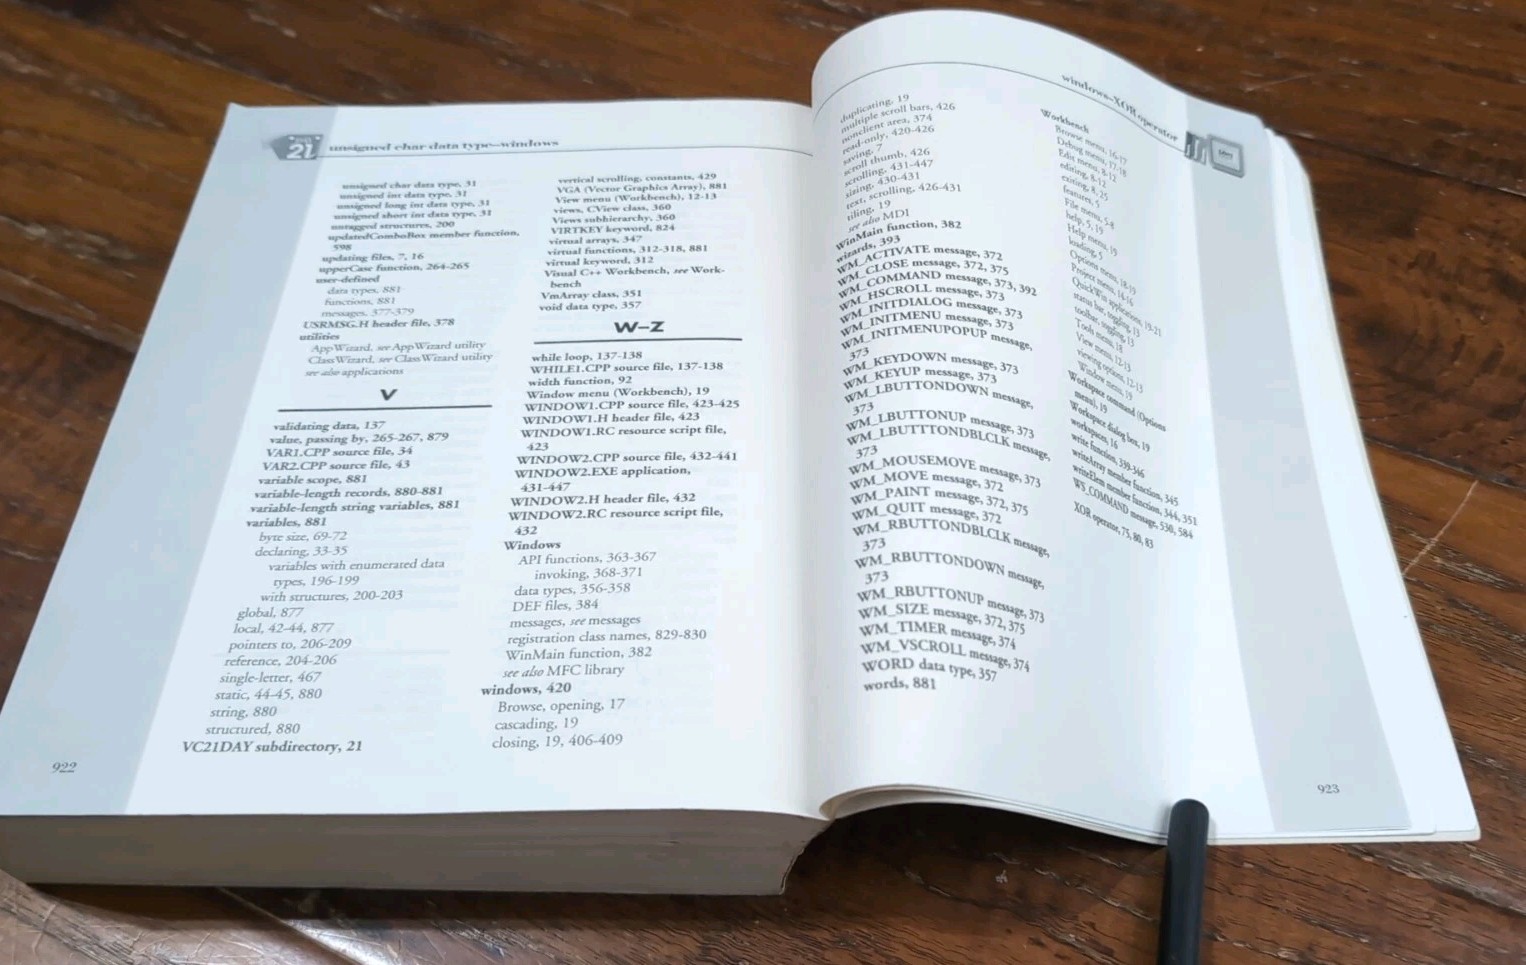 21
unsigned char data type–windows
unsigned char data type, 31
unsigned int data type, 31
unsigned long int data type, 31
unsigned short int data type, 31
untagged structures, 200
updatedComboBox member function,
598
updating files, 7, 16
upperCase function, 264-265
user-defined
data types, 881
functions, 881
messages, 377-379
USRMSG.H header file, 378
utilities
AppWizard, see AppWizard utility
ClassWizard, see ClassWizard utility
see also applications
V
validating data, 137
value, passing by, 265-267, 879
VAR1.CPP source file, 34
VAR2.CPP source file, 43
variable scope, 881
variable-length records, 880-881
variable-length string variables, 881
variables, 881
byte size, 69-72
declaring, 33-35
variables with enumerated data
types, 196-199
with structures, 200-203
global, 877
local, 42-44, 877
pointers to, 206-209
reference, 204-206
single-letter, 467
static, 44-45, 880
string, 880
structured, 880
VC21DAY subdirectory, 21
vertical scrolling, constants, 429
VGA (Vector Graphics Array), 881
View menu (Workbench), 12-13
views, CView class, 360
Views subhierarchy, 360
VIRTKEY keyword, 824
virtual arrays, 347
virtual functions, 312-318, 881
virtual keyword, 312
Visual C++ Workbench, see Work-
bench
VmArray class, 351
void data type, 357
W–Z
while loop, 137-138
WHILE1.CPP source file, 137-138
width function, 92
Window menu (Workbench), 19
WINDOW1.CPP source file, 423-425
WINDOW1.H header file, 423
WINDOW1.RC resource script file,
423
WINDOW2.CPP source file, 432-441
WINDOW2.EXE application,
431-447
WINDOW2.H header file, 432
WINDOW2.RC resource script file,
432
Windows
API functions, 363-367
invoking, 368-371
data types, 356-358
DEF files, 384
messages, see messages
registration class names, 829-830
WinMain function, 382
see also MFC library
windows, 420
Browse, opening, 17
cascading, 19
closing, 19, 406-409
922
windows–XOR operator
duplicating, 19
multiple scroll bars, 426
nonclient area, 374
read-only, 420-426
saving, 7
scroll thumb, 426
scrolling, 431-447
sizing, 430-431
text, scrolling, 426-431
tiling, 19
see also MDI
WinMain function, 382
wizards, 393
WM_ACTIVATE message, 372
WM_CLOSE message, 372, 375
WM_COMMAND message, 373, 392
WM_HSCROLL message, 373
WM_INITDIALOG message, 373
WM_INITMENU message, 373
WM_INITMENUPOPUP message,
373
WM_KEYDOWN message, 373
WM_KEYUP message, 373
WM_LBUTTONDOWN message,
373
WM_LBUTTONUP message, 373
WM_LBUTTTONDBLCLK message,
373
WM_MOUSEMOVE message, 373
WM_MOVE message, 372
WM_PAINT message, 372, 375
WM_QUIT message, 372
WM_RBUTTONDBLCLK message,
373
WM_RBUTTONDOWN message,
373
WM_RBUTTONUP message, 373
WM_SIZE message, 372, 375
WM_TIMER message, 374
WM_VSCROLL message, 374
WORD data type, 357
words, 881
Workbench
Browse menu, 16-17
Debug menu, 17-18
Edit menu, 8-12
editing, 8-12
exiting, 8, 25
features, 5
File menu, 5-8
help, 5, 19
Help menu, 19
loading, 5
Options menu, 18-19
Project menu, 14-16
QuickWin applications, 19-21
status bar, toggling, 13
toolbar, toggling, 13
Tools menu, 18
View menu, 12-13
viewing options, 12-13
Window menu, 19
Workspace command (Options
menu), 19
Workspace dialog box, 19
workspaces, 16
write function, 339-346
writeArray member function, 345
writeElem member function, 344, 351
WS_COMMAND message, 530, 584
XOR operator, 75, 80, 83
923